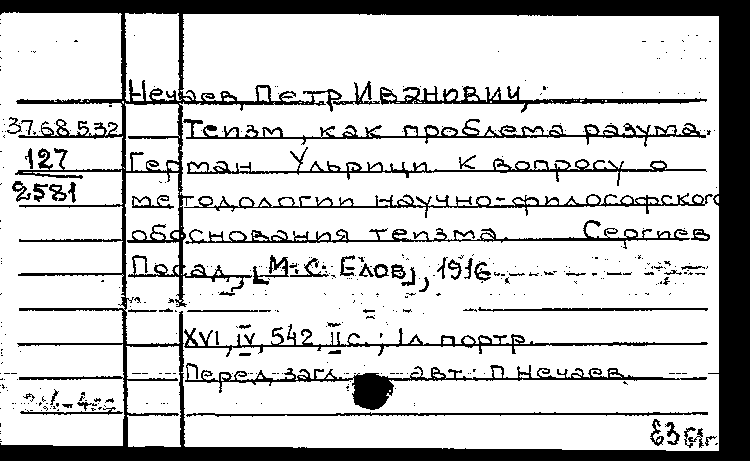 Нечаев, Петр Иванович,
37.68.532 Теизм, как проблема разума.
127 Герман Ульрици. К вопросу о
2581 методологии научно-философского
обоснования теизма. Сергиев
Посад, [М.С. Елов], 1916.
XVI, IV, 542, II с.; 1 л. портр.
Перед загл. авт.: П. Нечаев.